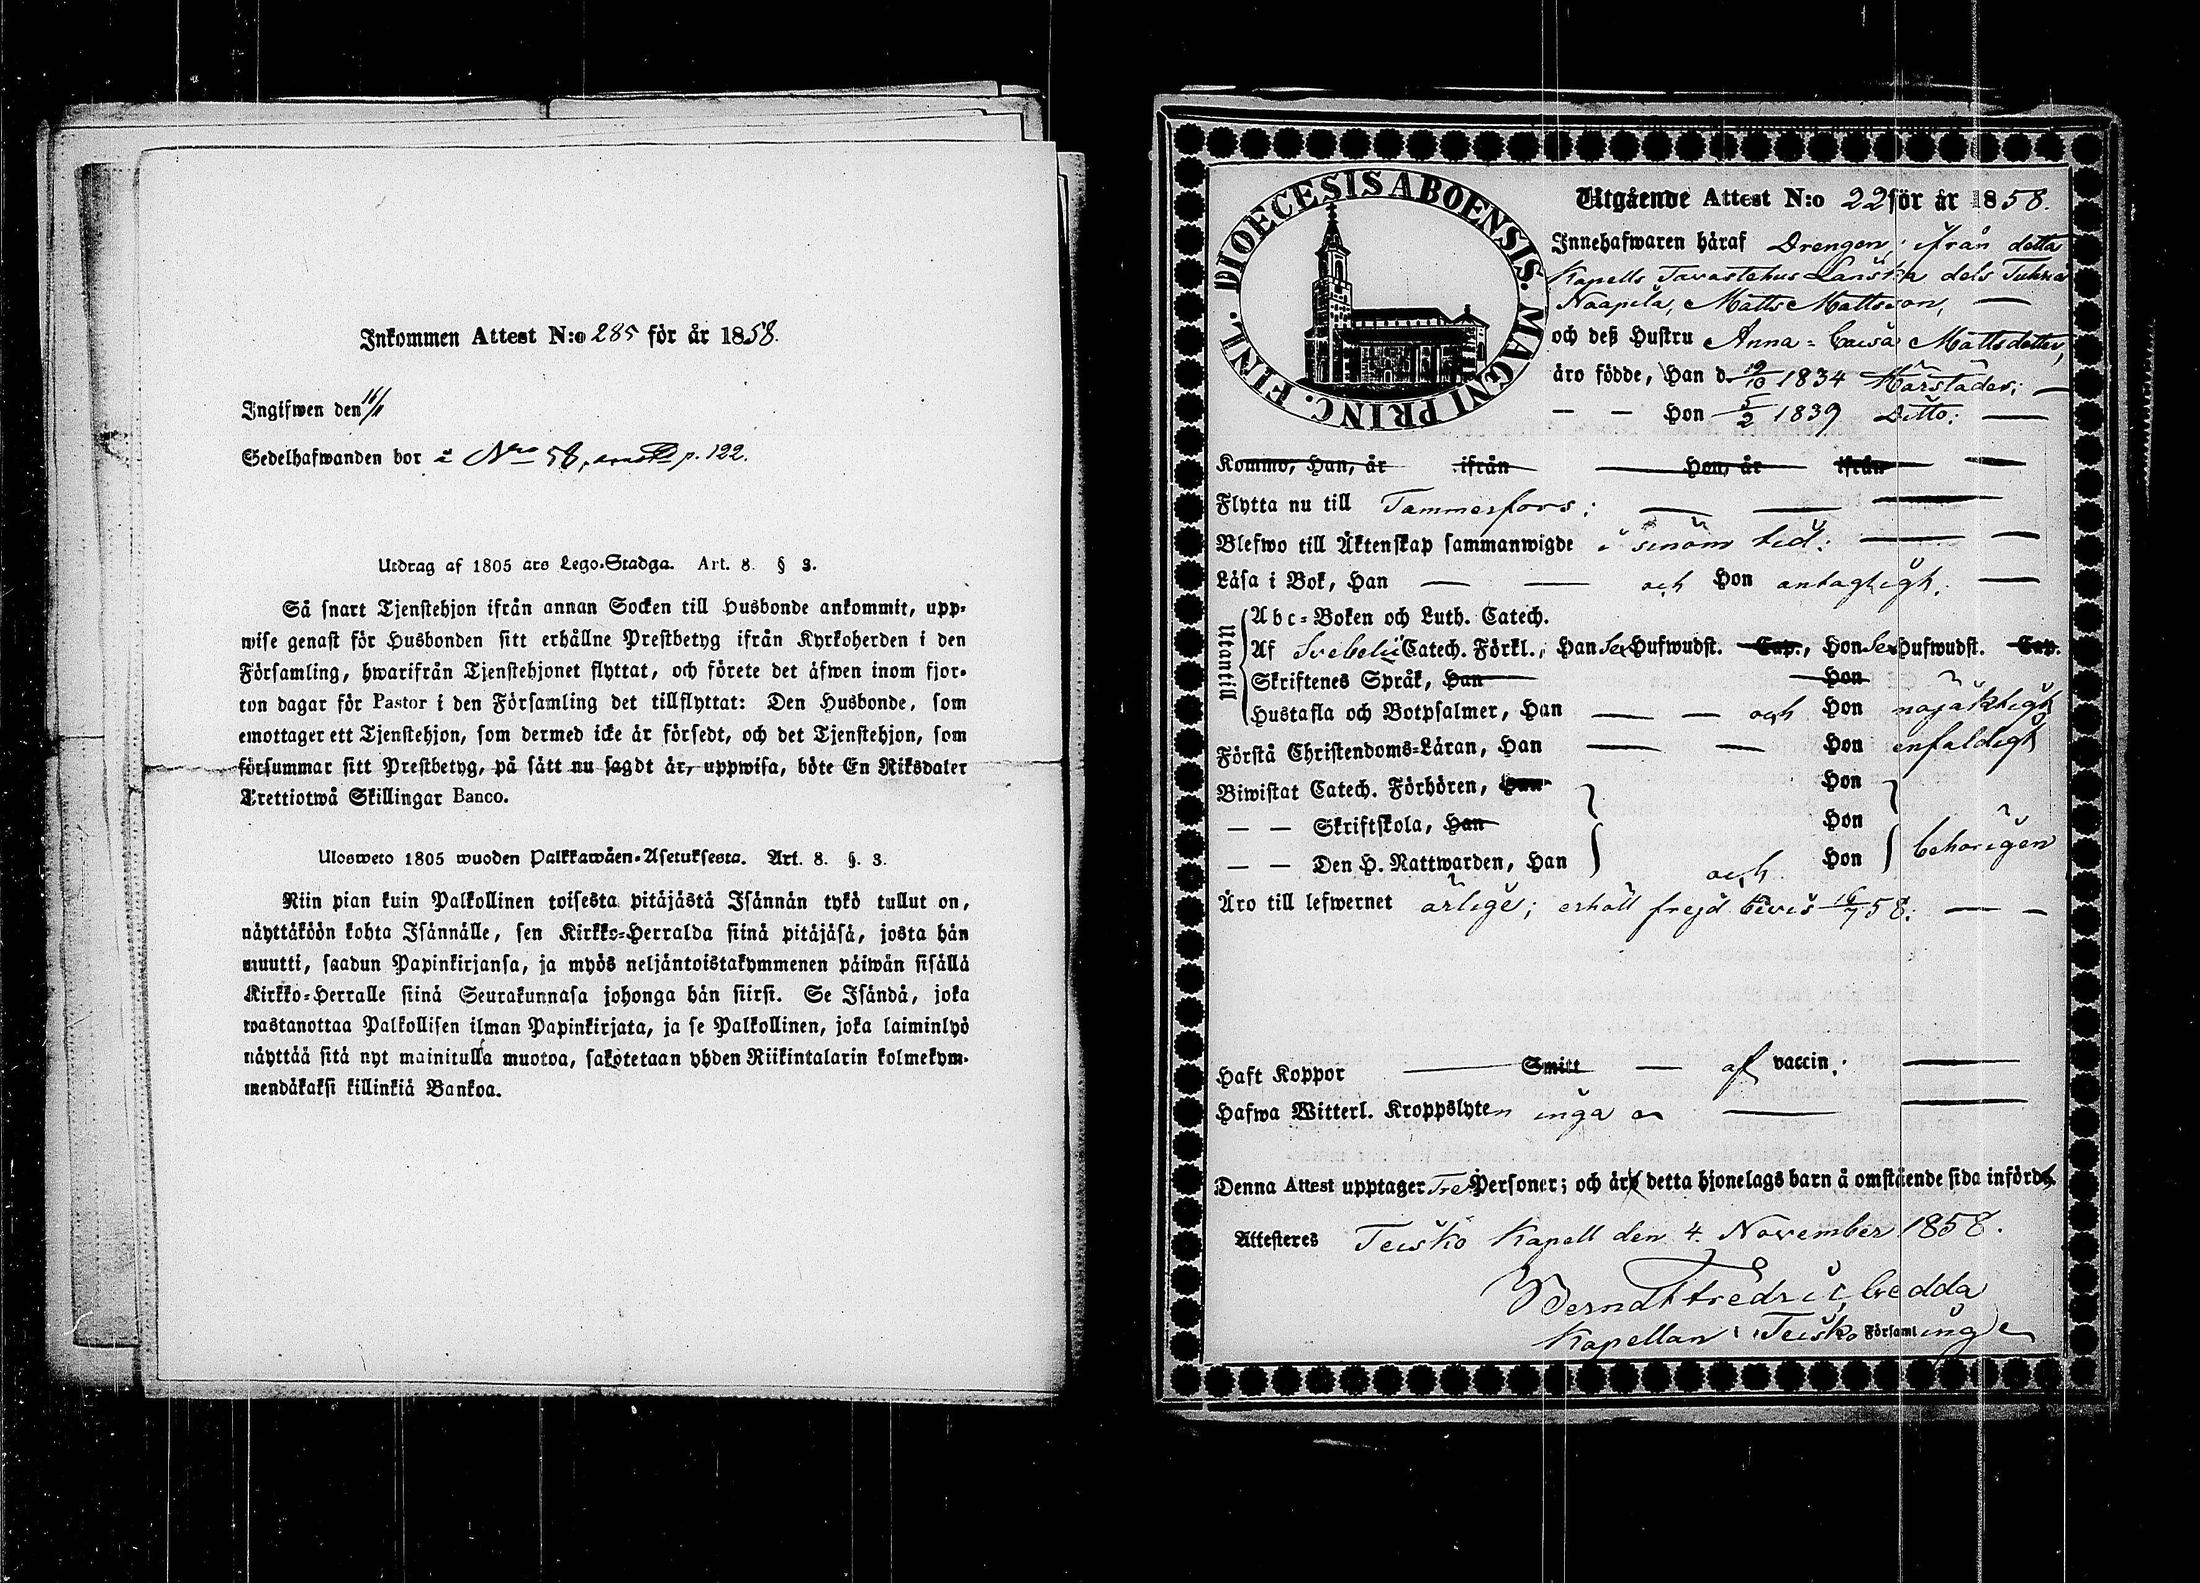 Inkommen Attest N:o 285 för år 1858.
Ingifwen den 16/11
Sedelhafwanden bor å Nro 58, p. 122.
Utdrag af 1805 års Lego-Stadga. Art. 8. § 3.
Så snart Tjenstehjon ifrån annan Socken till Husbonde ankommit, upp-
wise genast för Husbonden sitt erhållne Prestbetyg ifrån Kyrkoherden i den
Församling, hwarifrån Tjenstehjonet flyttat, och förete det äfwen inom fjor-
ton dagar för Pastor i den Församling det tillflyttat: Den Husbonde, som
emottager ett Tjenstehjon, som dermed icke är försedt, och det Tjenstehjon, som
försummar sitt Prestbetyg, på sätt nu sagdt är, uppwisa, böte En Riksdaler
Trettiotwå Skillingar Banco.
Ulosweto 1805 wuoden Palkkawäen-Asetuksesta. Art. 8. §. 3.
Niin pian kuin Palkollinen toisesta pitäjästä Isännän tykö tullut on,
näyttäköön kohta Isännälle, sen Kirkko-Herralda siinä pitäjäsä, josta hän
muutti, saadun Papinkirjansa, ja myös neljäntoistakymmenen päiwän sisällä
Kirkko-Herralle siinä Seurakunnasa johonga hän siirsi. Se Isändä, joka
wastanottaa Palkollisen ilman Papinkirjata, ja se Palkollinen, joka laiminlyö
näyttää sitä nyt mainitulla muotoa, sakotetaan yhden Riikintalarin kolmekym-
mendäkaksi killinkiä Bankoa.
DIOECESIS ABOENSIS. MAGNI PRINC. FINL.
Utgående Attest N:o 22 för år 1858.
Innehafwaren häraf Drengen ifrån detta
Kapells Tavastehus Länska dels Tuhka
Naapila, Matts Mattsson,
och deß Hustru Anna-Caisa Mattsdotter,
äro födde, Han d. 19/10 1834 Härstädes;
— — Hon 5/2 1839 Ditto;
Kommo, Han, år ifrån Hon, år ifrån
Flytta nu till Tammerfors;
Blefwo till Äktenskap sammanwigde i sinom tid;
Läsa i Bok, Han — — och Hon antagligt,
Utantill
Abc-Boken och Luth. Catech.
Af Svebelii Catech. Förkl., Han Sex Hufwudst. Cap., Hon Sex Hufwudst. Cap.
Skriftenes Språk, Han Hon
Hustafla och Botpsalmer, Han — — och Hon nöjaktigt
Förstå Christendoms-Läran, Han — — Hon enfaldigt
Biwistat Catech. Förhören, Han Hon
— — Skriftskola, Han Hon
— — Den H. Nattwarden, Han och Hon behörigen
Äro till lefwernet ärlige; erhöll frejd bevis 16/7 58;
Haft Koppor — Smitt — af vaccin;
Hafwa Witterl. Kroppslyten inga
Denna Attest upptager Tre Personer; och är detta hjonelags barn å omstående sida infördt.
Attesteres Teisko Kapell den 4. November 1858.
Berndt Fredric Gedda
Kapellan i Teisko Församling